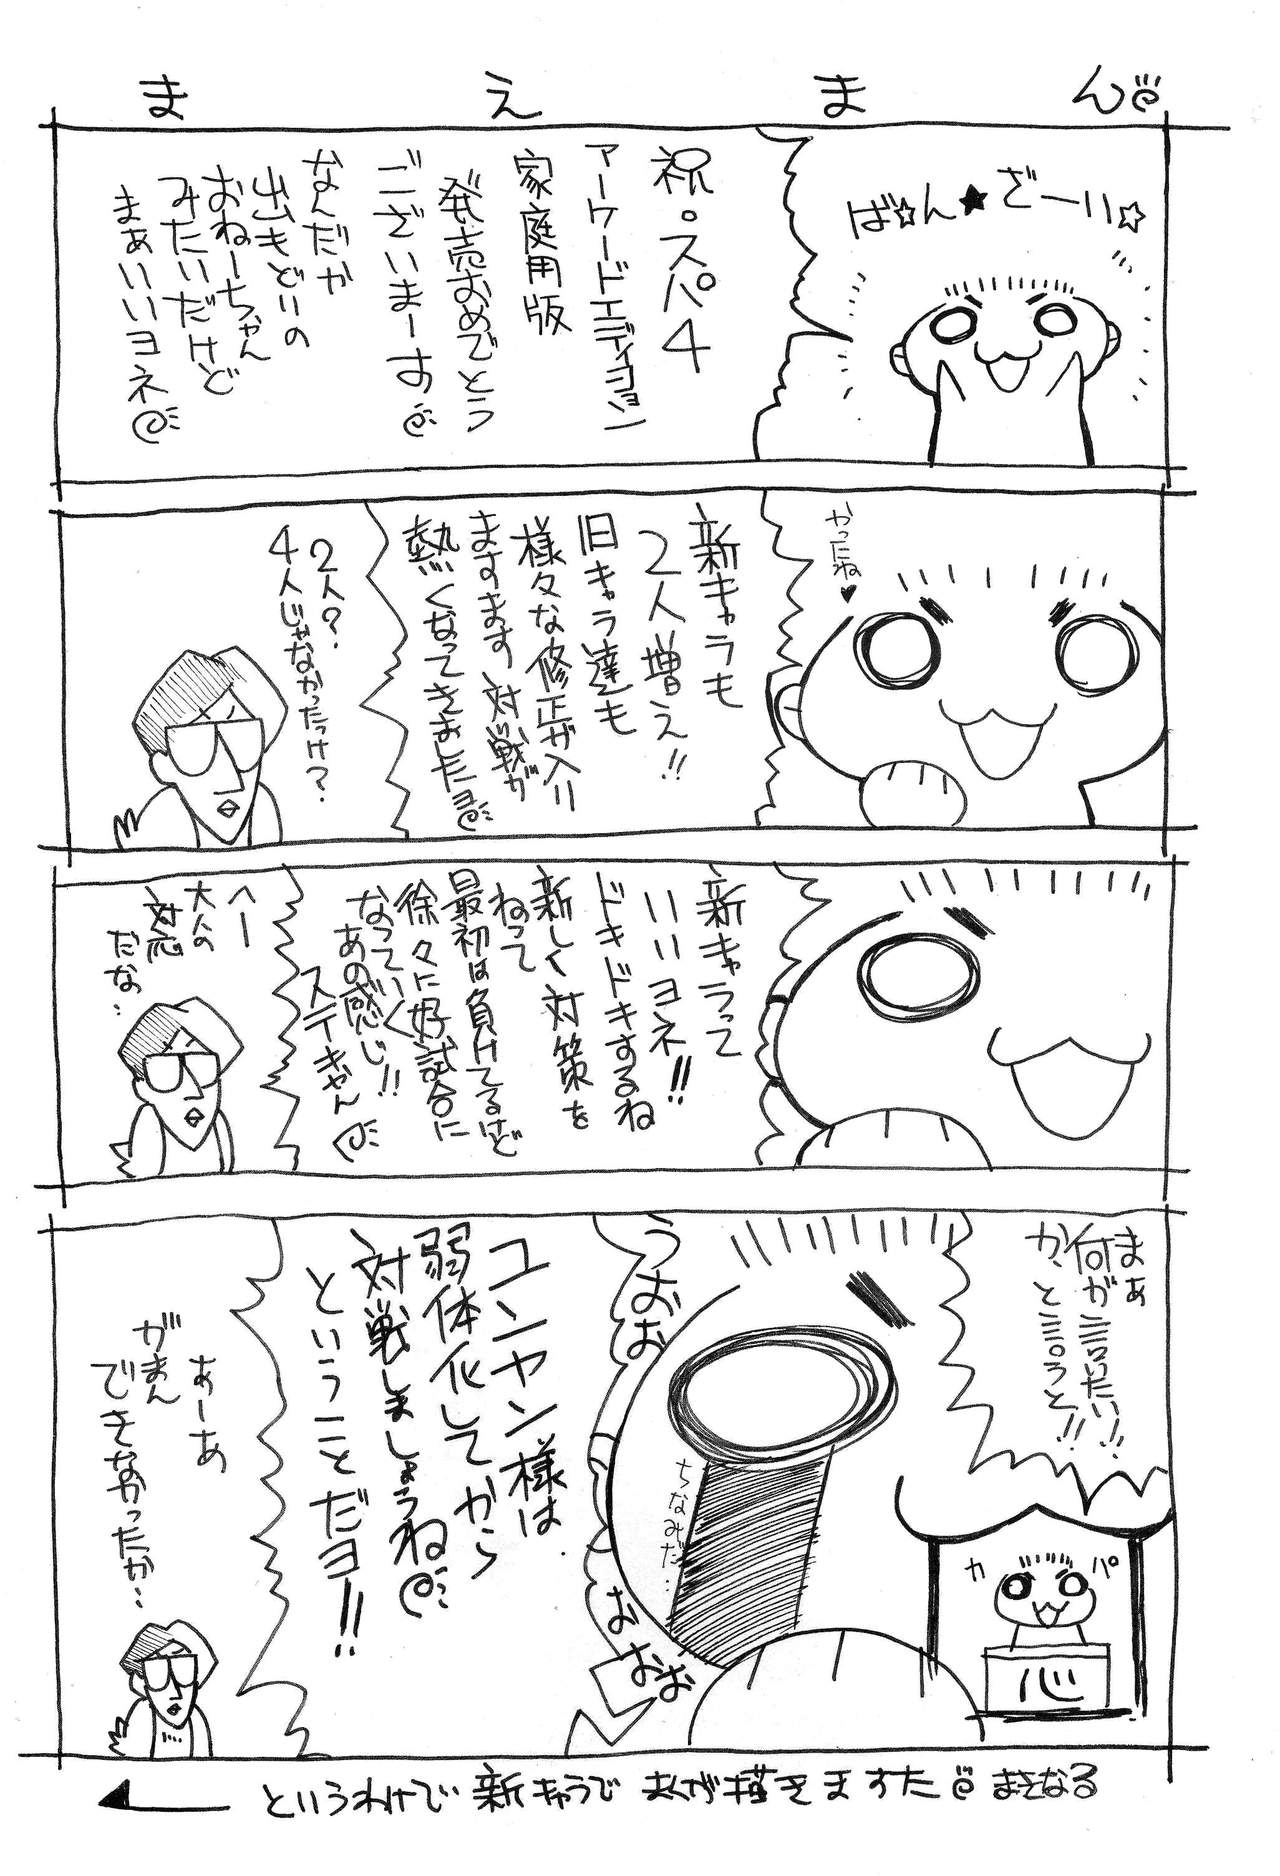 まえまん
ば☆ん★ざーい☆
祝。スパ4
アーケードエディション
家庭用版
発売おめでとう
ございまーす
なんだか
出もどりの
おねーちゃん
みたいだけど
まぁいいヨネ
やったね♥
新キャラも
2人増え!!
旧キャラ達も
様々な修正が入り
ますます対戦が
熱くなってきましたヨ
2人?
4人じゃなかったっけ?
新キャラって
いいヨネ!!
ドキドキするね
新しく対策を
ねって
最初は負けてるけど
徐々に好試合に
なっていく
あの感じ!!
ステキやん
へー
大人の
対応
だな..
まぁ
何が言いたい!!
か、と言うと!!
うおお
おおおお
ちなみだ...
カパ
心
ユンヤン様は
弱体化してから
対戦しましょうね
ということだヨ!!
あーあ
がまん
できなかったか...
というわけで新キャラでまんが描きますた まさなる